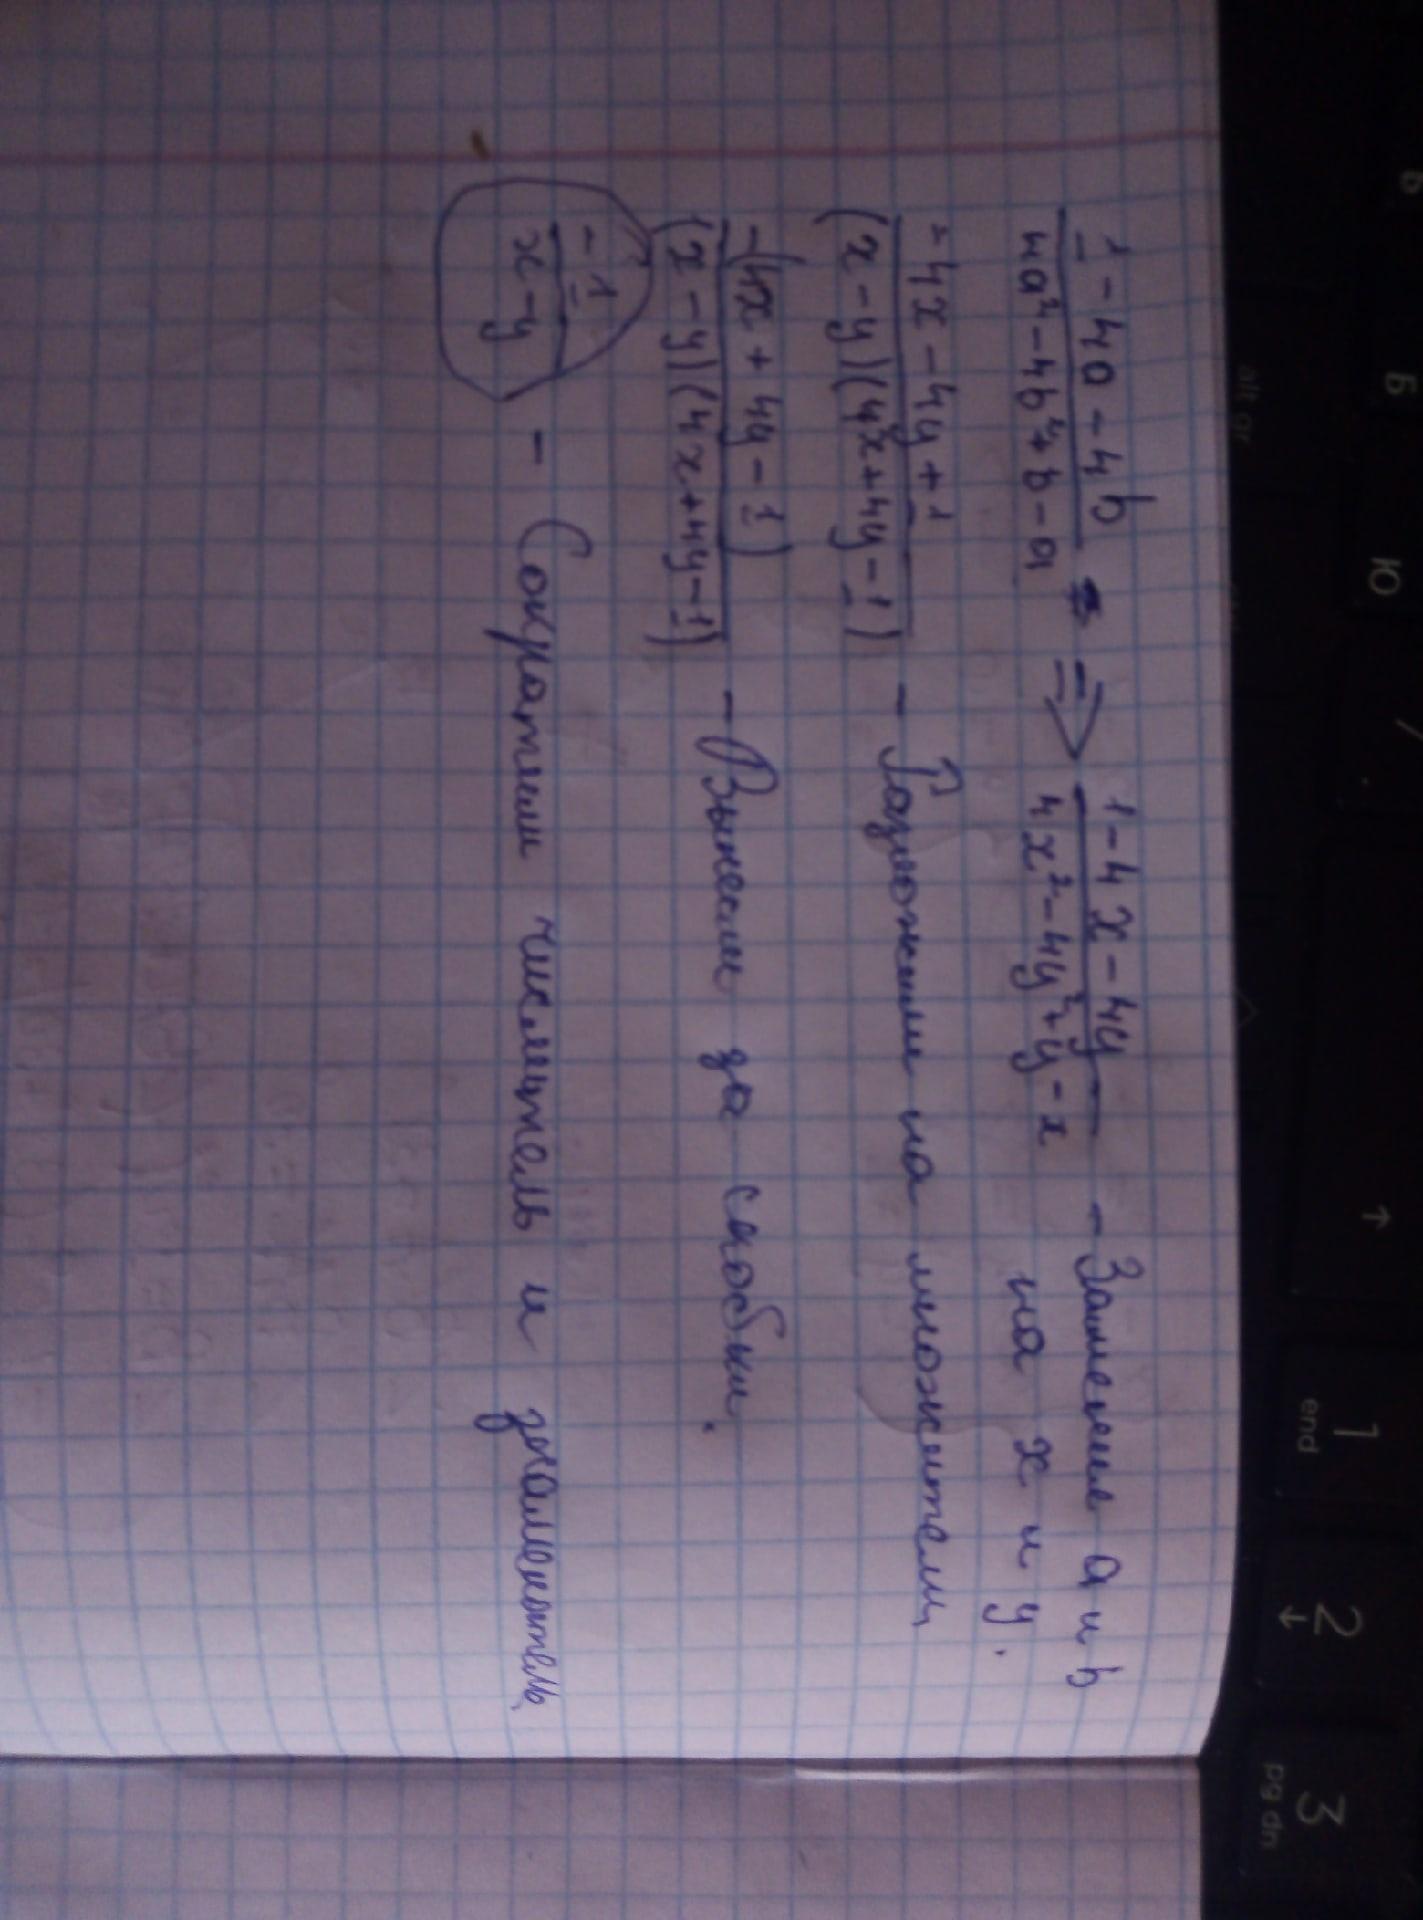 1 - 4a - 4b / 4a² - 4b² + b - a => 1 - 4x - 4y / 4x² - 4y² + y - x - Заменим a и b
на x и y.
-4x - 4y + 1 / (x - y)(4x + 4y - 1) - Разложим на множители
-(4x + 4y - 1) / (x - y)(4x + 4y - 1) - Вынесем за скобки.
-1 / x - y - Сократим числитель и знаменатель
Б
Ю
alt gr
/
↑
1
end
2
↓
3
pg dn